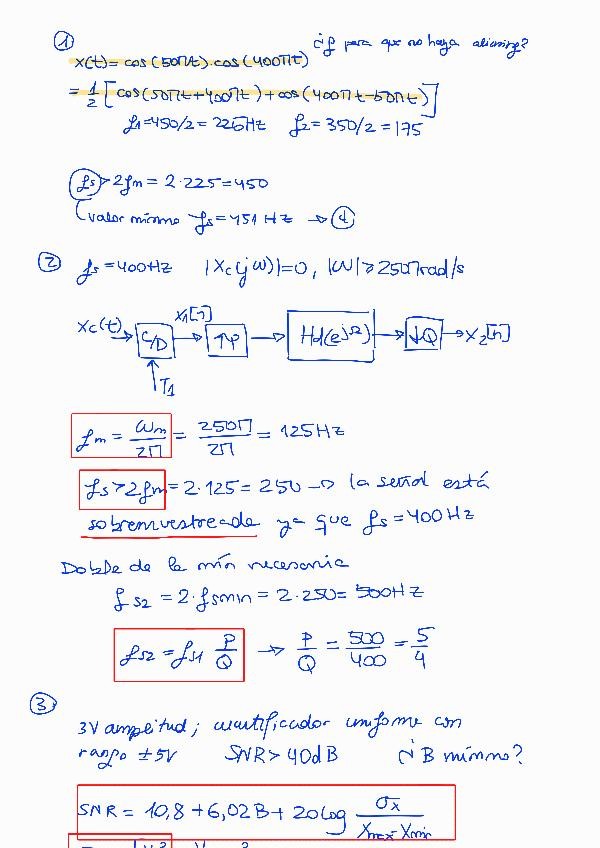 ① ¿f para que no haya aliasing?
x(t) = cos(50πt)·cos(400πt)
= 1/2 [cos(50πt+400πt)+cos(400πt-50πt)]
f1=450/2 = 225Hz f2=350/2=175
fs>2fm = 2·225=450
valor mínimo fs=451Hz → d
② fs=400Hz |Xc(jω)|=0, |ω|≥250πrad/s
xc(t) → C/D x1[n] → ↑P → Hd(e^jΩ) → ↓Q → x2[n]
↑T1
fm = ωm/2π = 250π/2π = 125Hz
fs>2fm=2·125=250 → la señal está
sobremuestreada ya que fs=400Hz
Doble de la mín necesaria
fs2 = 2·fsmin = 2·250= 500Hz
fs2 = fs1 P/Q → P/Q = 500/400 = 5/4
③
3V amplitud; cuantificador uniforme con
rango ±5V SNR>40dB ¿B mínimo?
SNR = 10,8+6,02B+20log σx/Xmax-Xmin